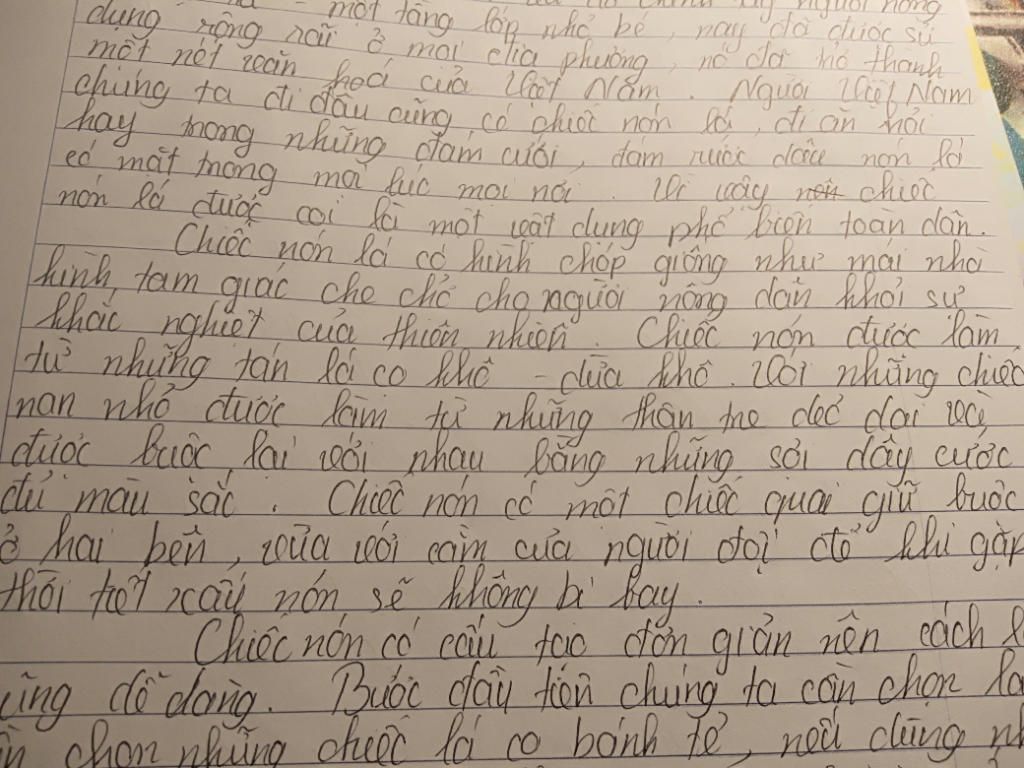 một tầng lớp nhỏ bé, nay đã được sử
dụng rộng rãi ở mọi địa phường, nó đã trở thành
một nét văn hoá của Việt Nam. Người Việt Nam
chúng ta đi đâu cũng có chiếc nón lá, đi ăn hỏi
hay trong những đám cưới, đám rước dâu nón lá
có mặt trong mọi lúc mọi nơi. Vì vậy chiếc
nón lá được coi là một vật dụng phổ biến toàn dân.
Chiếc nón lá có hình chóp giống như mái nhà
hình tam giác che chở cho người nông dân khỏi sự
khắc nghiệt của thiên nhiên. Chiếc nón được làm
từ những tán lá cọ khô - dừa khô. Với những chiếc
nan nhỏ được làm từ những thân tre dẻo dai và
được buộc lại với nhau bằng những sợi dây cước
đủ màu sắc. Chiếc nón có một chiếc quai giữ buộc
ở hai bên, vừa với cằm của người đội để khi gặp
thời tiết xấu nón sẽ không bị bay.
Chiếc nón có cấu tạo đơn giản nên cách
cũng dễ dàng. Bước đầu tiên chúng ta cần chọn lá
chọn những chiếc lá cọ bánh tẻ, nếu dùng